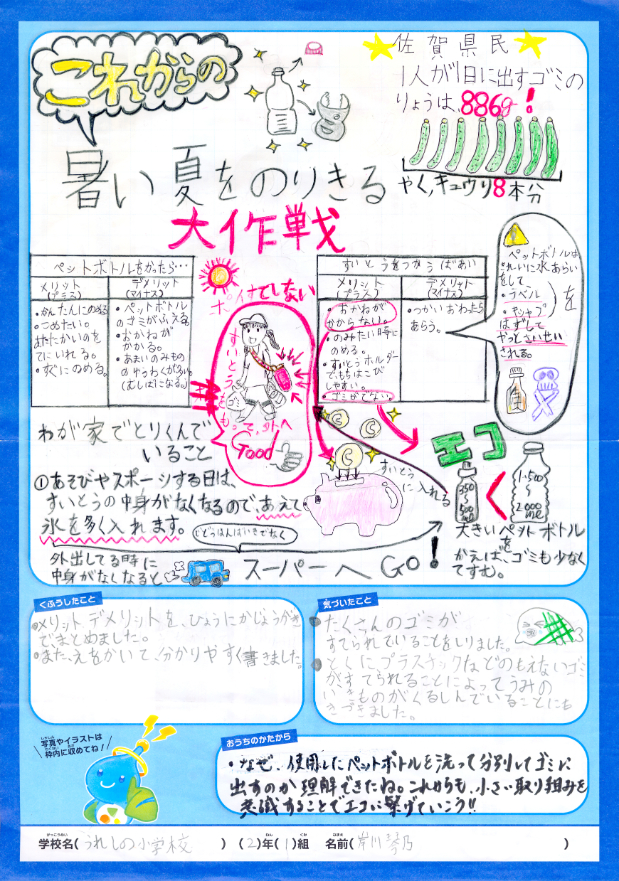 これからの
暑い夏をのりきる
大作戦
佐賀県民
1人が1日に出すゴミの
りょうは、886g!
やく、キュウリ8本分
ペットボトルをかったら…
メリット
(プラス)
デメリット
(マイナス)
・かんたんにのめる
・つめたい。
あたたかいのを
てにいれる。
・すぐにのめる。
・ペットボトル
のゴミがふえる。
・おかねが
かかる。
・あまいのみもの
(むしばになる。)
ポイすてしない
すいとう
ゴミ
もって、外へ
Good
すいとうをつかうばあい
メリット
(プラス)
デメリット
(マイナス)
・おかねが
かからない。
・のみたい時に
のめる。
・すいとうホルダー
でもちはこび
しやすい。
・ゴミがでない。
・つかいおわったら
あらう。
ペットボトルは
きれいに水あらい
をして、
・ラベル
・キャップ
を
はずして
やってさいせい
される。
わが家でとりくんで
いること
①あそびやスポーツする日は、
すいとうの中身がなくなるので、あえて
氷を多く入れます。
じどうはんばいきでなく
外出してる時に
中身がなくなると、
スーパーへGO!
すいとう
に入れる
エコ
1.500
2000
大きいペットボトル
を
かえば、ゴミも少なく
てすむ。
くふうしたこと
・メリットデメリットを、ひょうにかじょうがき
でまとめました。
・また、えをかいて、分かりやすく書きました。
気づいたこと
・たくさんのゴミが
すてられていることをしりました。
・とくにプラスチックなどのもえないゴミ
がすてられることによってうみの
いきものがくるしんでいることにも
きづきました。
写真やイラストは
枠内に収めてね!
おうちのかたから
・なぜ、使用したペットボトルを洗って分別してゴミに
出すのか理解できたね。これからも、小さい取り組みを
意識することでエコに繋げていこう!!
学校名(うれしの小学校) (2)年(1)組 名前(岸川琴乃)